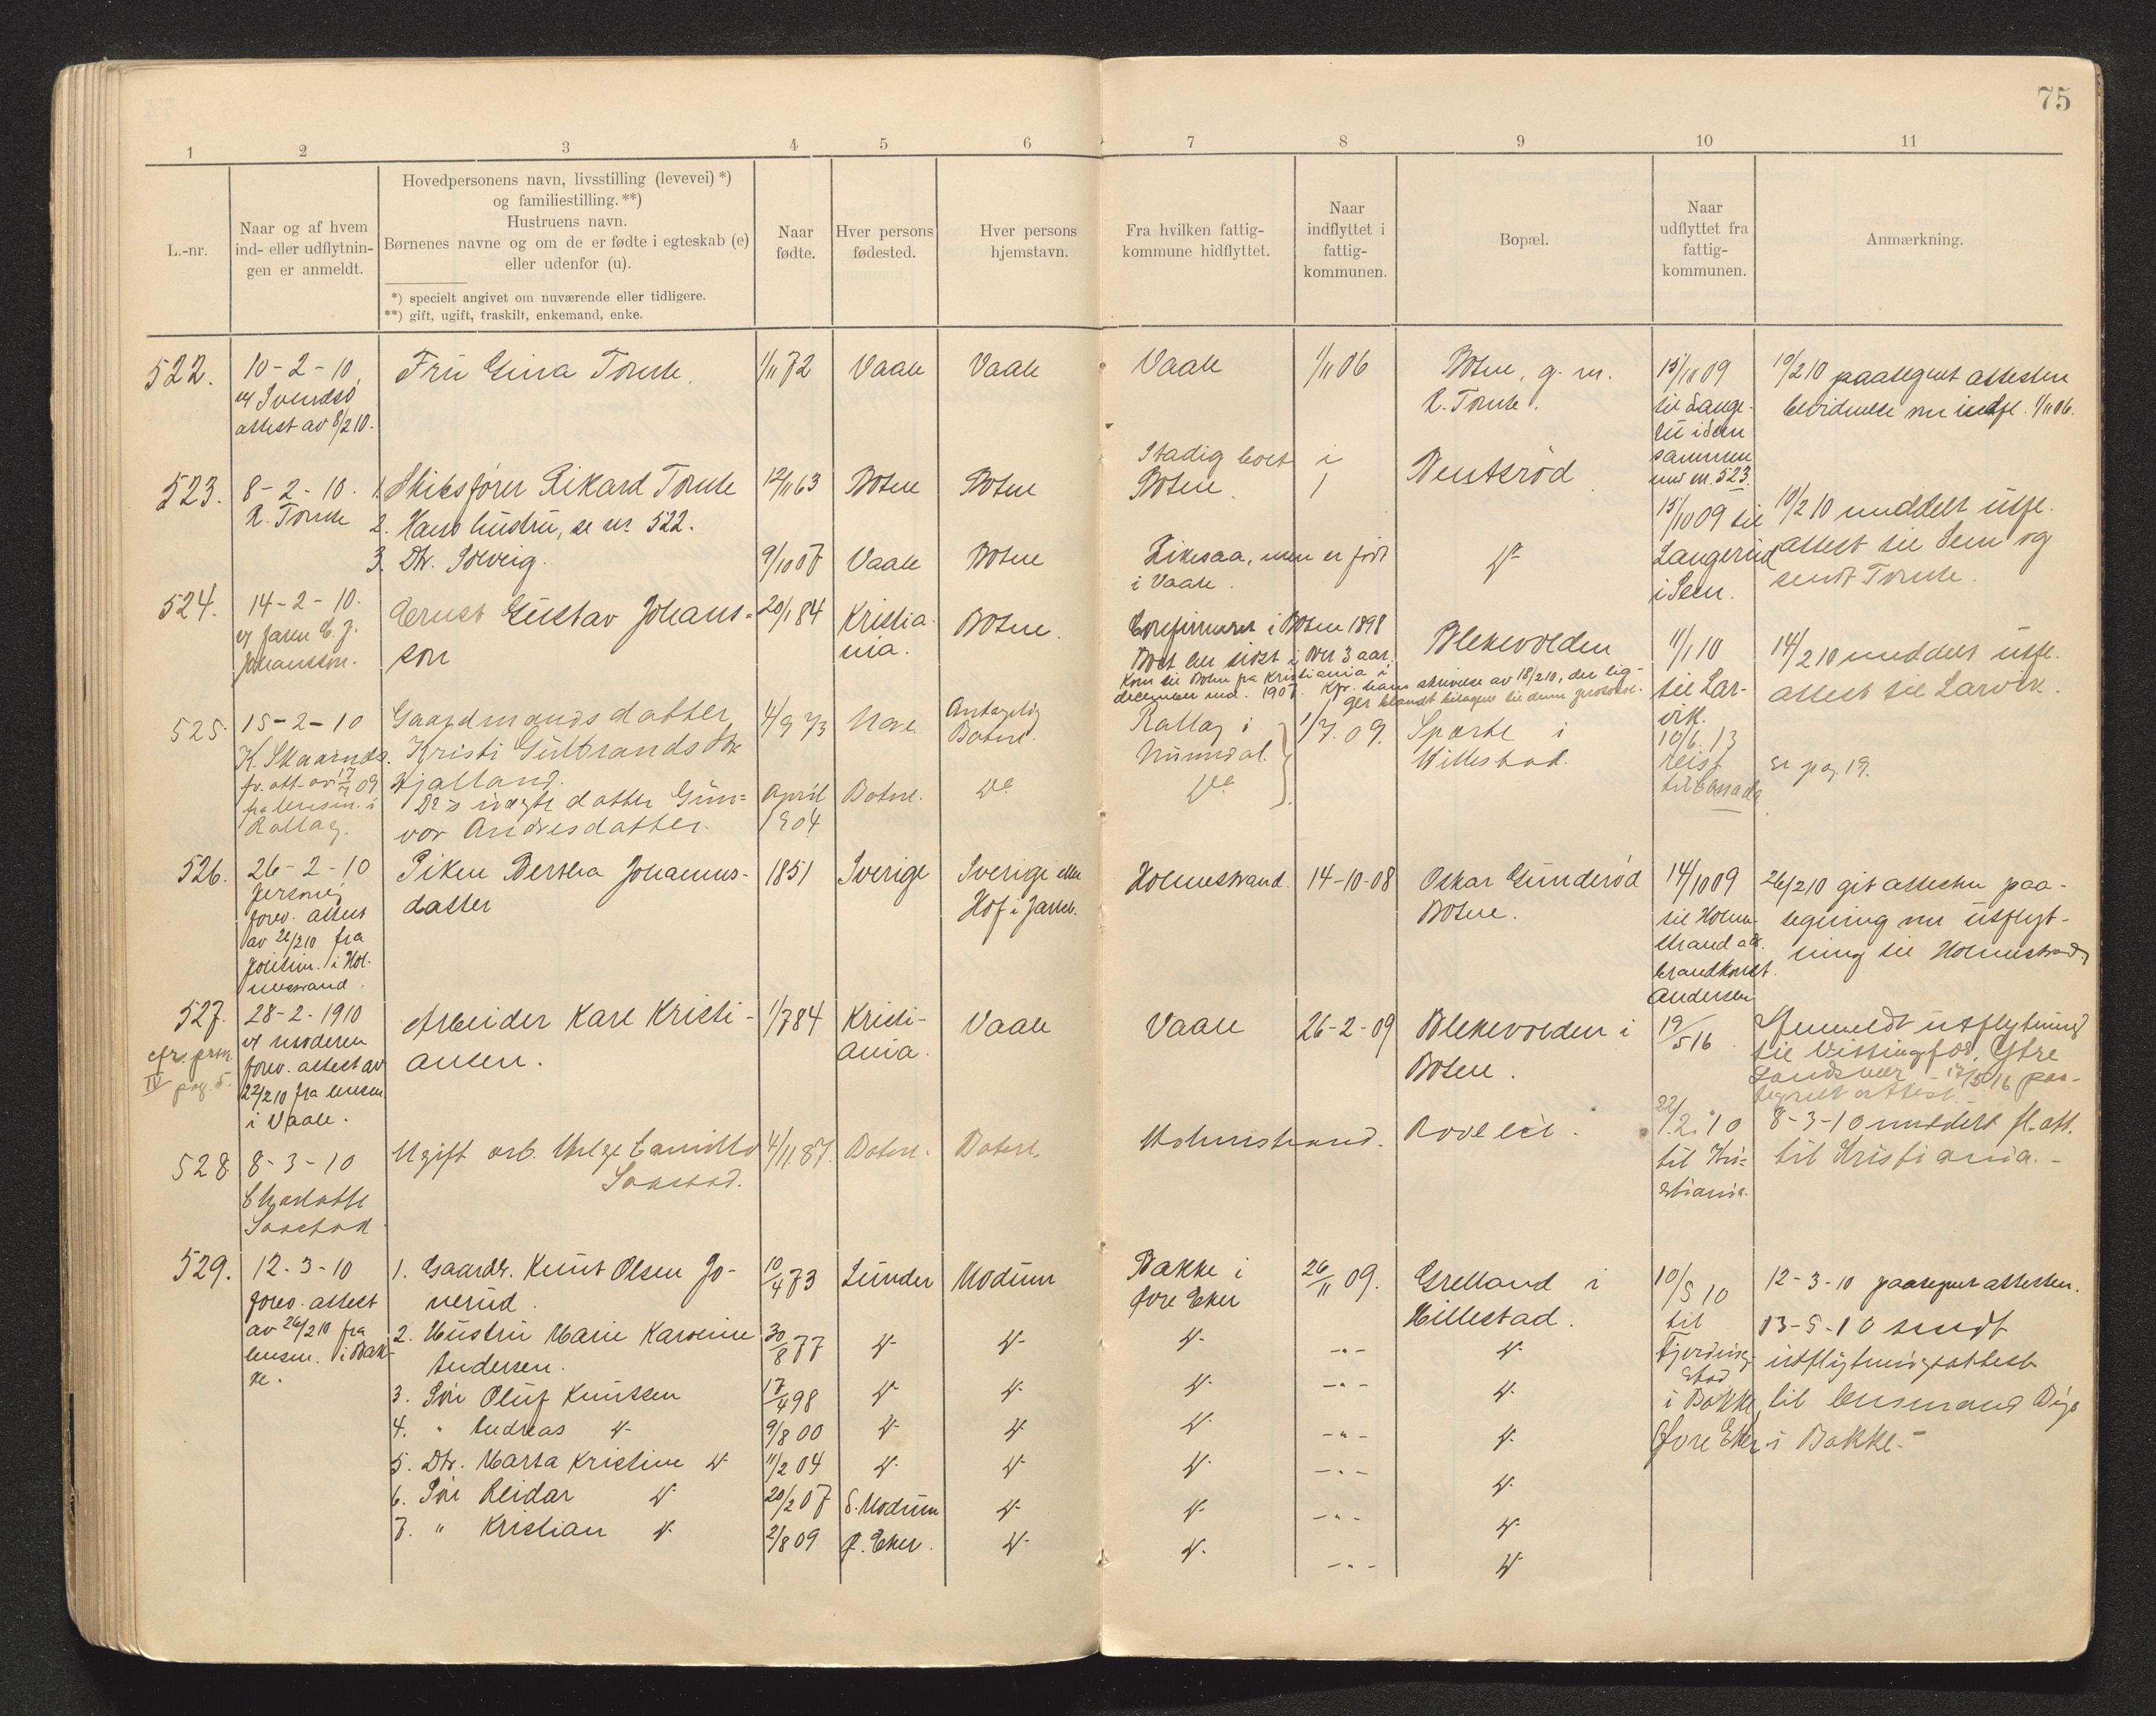 75
1 2 3 4 5 6 7 8 9 10 11
L.-nr.
Naar og af hvem
ind- eller udflytnin-
gen er anmeldt.
Hovedpersonens navn, livsstilling (levevei) *)
og familiestilling. **)
Hustruens navn.
Børnenes navne og om de er fødte i egteskab (e)
eller udenfor (u).
*) specielt angivet om nuværende eller tidligere.
**) gift, ugift, fraskilt, enkemand, enke.
Naar
fødte.
Hver persons
fødested.
Hver persons
hjemstavn.
Fra hvilken fattig-
kommune hidflyttet.
Naar
indflyttet i
fattig-
kommunen.
Bopæl.
Naar
udflyttet fra
fattig-
kommunen.
Anmærkning.
522.
10-2-10
attest av 8/2 10.
Fru Gina Tomte.
1/11 72
Vaale
Vaale
Vaale
1/11 06
Botne, g. m.
R. Tomte.
15/10 09
til Lange-
rud i Sem
sammen
med nr. 523.
10/2 10 paategnet attesten
bevidnelse om indfl. 1/11 06.
523.
8-2-10.
R. Tomte
1. Skibsfører Rikard Tomte
2. Hans hustru, se nr 522.
3. Dtr. Solveig.
12/11 63
9/10 07
Botne
Vaale
Botne
Botne
Stadig boet i
Botne.
Likesaa, men er født
i Vaale.
15/10 09 til
Langerud
i Sem.
10/2 10 meddelt utfl.
attest til Sem og
sendt Tomte.
524.
14-2-10.
Johansson.
Ernst Gustav Johans-
son
20/1 84
Kristia-
nia.
Botne.
Konfirmeret i Botne 1898
Boet her sidst i over 3 aar.
Kom til Botne fra Kristiania i
december md. 1907. Kfr. hans skrivelse av 18/2 10, der lig-
ger blandt bilagene til denne protokol.
Blekevolden
11/1 10
til Lar-
vik.
14/2 10 meddelt utfl.
attest til Larvik.
525.
15-2-10
K. Skaarnds.
fra lensm. i
Rollag.
Gaardmandsdatter
Kristi Gulbrandsdtr
Hjalland.
Ds uegte datter Gun-
vor Andresdatter.
4/9 73
April
1904
Nore
Botne.
Antagelig
Botne.
Do
Rollag i
Numedal.
Do
1/7.09.
Sporte i
Hillestad.
10/6.13
reist
til Canada
se pag 19.
526.
26-2-10
forev. attest
av 22/2 10 fra
politim. i Hol-
mestrand.
Piken Bertha Johannes-
datter
1851
Sverige
Sverige eller
Hof i Jarlsb.
Holmestrand.
14-10-08
Oskar Gunderød
Botne.
14/10 09
til Holme-
strand adr.
brandkonst.
Andersen
26/2 10 git attesten paa-
tegning om utflyt-
ning til Holmestrand
527.
cfr. prm.
IV pag. 5.
28-2-1910
v/ moderen
forev. attest av
22/2 10 fra lensm
i Vaale.
Arbeider Karl Kristi-
ansen.
1/7 84
Kristi-
ania.
Vaale
Vaale
26-2-09
Blekevolden i
Botne.
19/5 16
Anmeldt utflytning
til
17/5 16 paa-
tegnet attest.
528
8-3-10
Charlotte
Saastad
Ugift arb. Helge Camillo
Saastad.
4/11.87.
Botne.
Botne.
Holmestrand.
22/2. 10
til Kri-
stiania.
8-3-10 meddelt fl. att.
til Kristiania.-
529.
12-3-10
forev. attest
av 26/2 10 fra
lensm. i Bak-
ke.
1. Gaardbr. Knut Olsen Jo-
nerud.
2. Hustru Marie Karoline
Andersen.
3. Søn Oluf Knutsen
4. " Andreas do
5. Dtr. Marta Kristine do
6. Søn Reidar do
7. " Kristian do
10/4 73
30/8 77
17/4 98
9/8 00
11/2 04
20/2 07
2/8 09
Lunder
do
do
do
do
S. Modum
Ø. Eker.
Modum
do
do
do
do
do
do
Bakke i
Øvre Eker
do
do
do
do
do
do
26/11 09.
-"-
-"-
-"-
-"-
-"-
-"-
Grelland i
Hillestad.
do
do
do
do
do
do
10/5 10
til
Fjerding-
stad
i Bakke,
Øvre Eker
12-3-10 paategnet attesten.
13-5-10 sendt
utflytningsattest
til lensmand
i Bakke.-